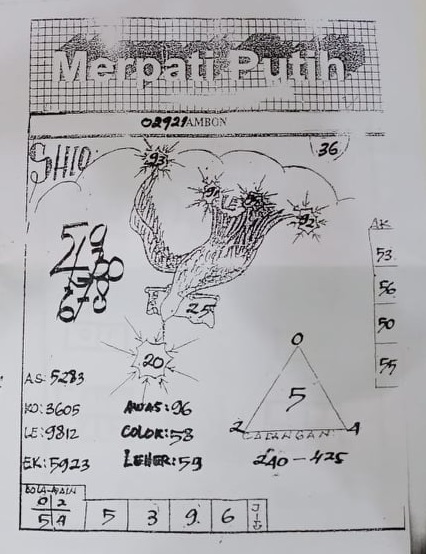 Merpati Putih
02921 AMBON
36
SHIO
93
92
20
25
AK
53
56
50
55
AS: 5283
KO: 3605
LE: 9812
EK: 5923
AWAS: 96
COLOK: 58
LEHER: 59
0
5
2
4
CADANGAN
240 - 425
BOLA-MAIN
0 2
5 4
5 3 9 6